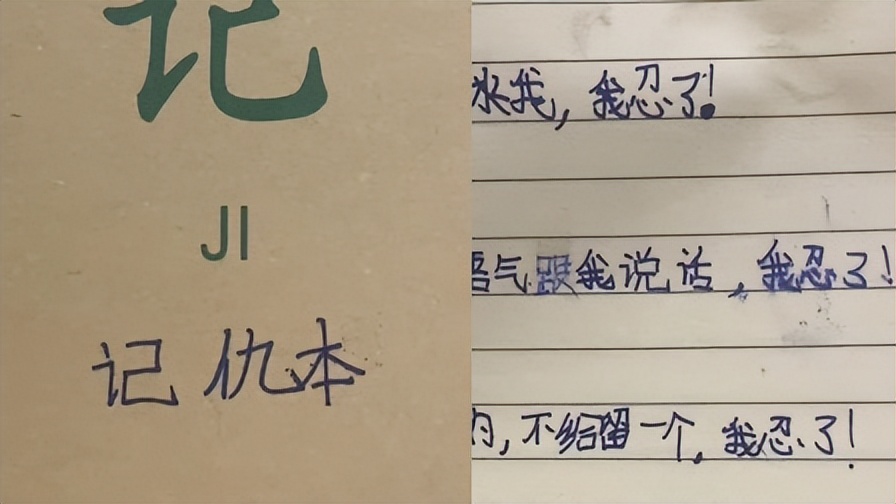 记
JI
记仇本
我，我忍了！
气跟我说话，我忍了！
，不给留一个，我忍了！